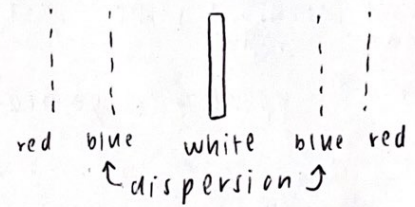 red blue white blue red
dispersion